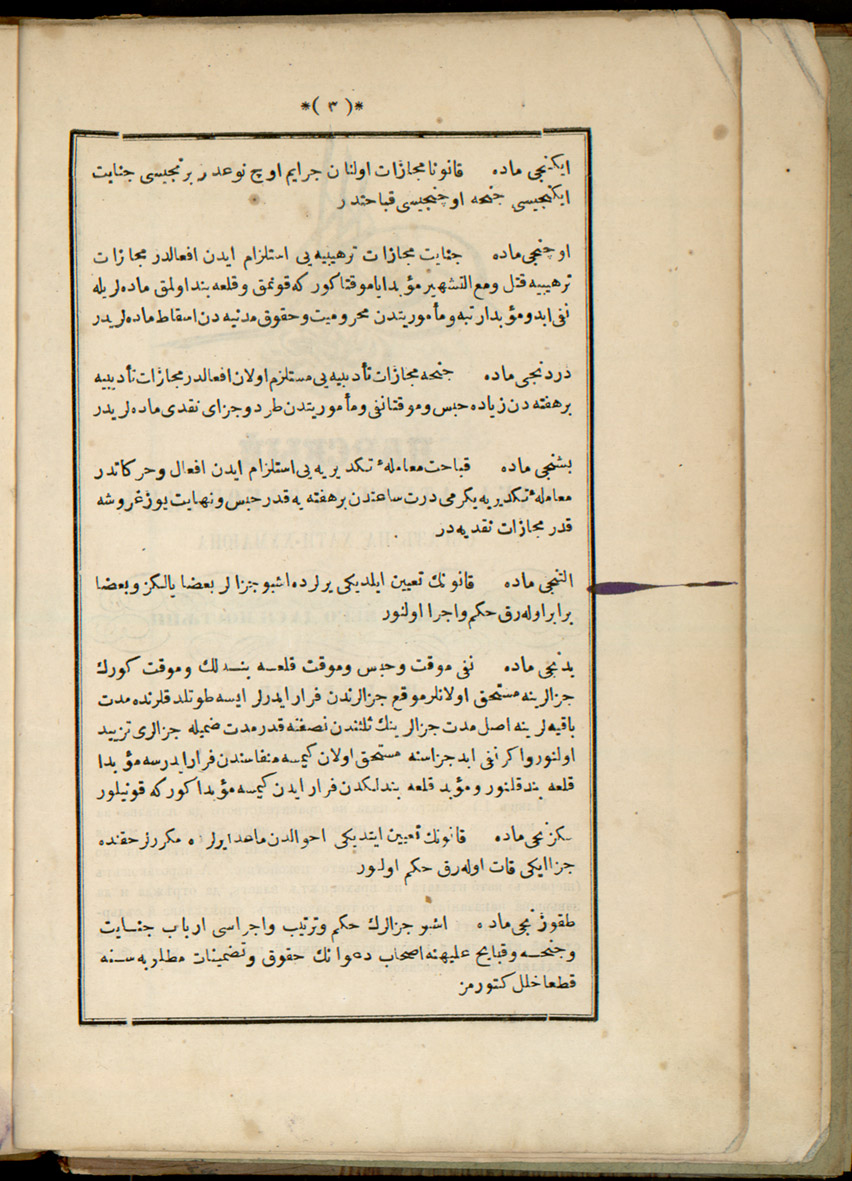 *( ٣ )*
ایكنجی ماده قانونا مجازات اولنان جرایم اوچ نوعدر برنجیسی جنایت
ایكنجیسی جنحه اوچنجیسی قباحتدر
اوچنجی ماده جنایت مجازات ترهیبیه یی استلزام ایدن افعالدر مجازات
ترهیبیه قتل ومع التشهیر مؤبدا یا موقتا كوركه قونمق وقلعه بند اولمق ماده لریله
نفی ابد ومؤبدا رتبه ومأموریتدن محرومیت وحقوق مدنیه دن اسقاط ماده لریدر
دردنجی ماده جنحه مجازات تأدیبیه یی مستلزم اولان افعالدر مجازات تأدیبیه
برهفته دن زیاده حبس وموقتا نفی ومأموریتدن طرد وجزای نقدی ماده لریدر
بشنجی ماده قباحت معامله ٔ تكدیریه یی استلزام ایدن افعال وحركاتدر
معامله ٔ تكدیریه یكرمی درت ساعتدن برهفته یه قدر حبس ونهایت یوز غروشه
قدر مجازات نقدیه در
التنجی ماده قانونك تعیین ایلدیكی یرلرده اشبو جزالر بعضا یالكز وبعضا
برابر اوله رق حكم واجرا اولنور
یدنجی ماده نفی موقت وحبس وموقت قلعه بندلك وموقت كورك
جزالرینه مستحق اولانلر موقع جزالرندن فرار ایدرلر ایسه طوتلدقلرنده مدت
باقیه لرینه اصل مدت جزالرینك ثلثندن نصفنه قدر مدت ضمیله جزالری تزیید
اولنور واكر نفی ابد جزاسنه مستحق اولان كیمسه منفاسندن فرار ایدرسه مؤبدا
قلعه بند قلنور ومؤبد قلعه بندلكدن فرار ایدن كیمسه مؤبدا كوركه قونیلور
سكزنجی ماده قانونك تعیین ایتدیكی احوالدن ماعدا یرلرده مكررلر حقنده
جزا ایكی قات اوله رق حكم اولنور
طقوزنجی ماده اشبو جزالرك حكم وترتیب واجراسی ارباب جنایت
وجنحه وقبایح علیهنه اصحاب دعوانك حقوق وتضمینات مطلوبه سنه
قطعا خلل كتورمز